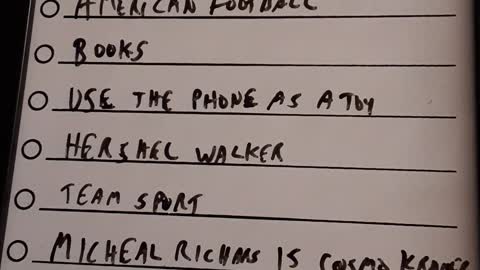 AMERICAN FOOTBALL
BOOKS
USE THE PHONE AS A TOY
HERSHEL WALKER
TEAM SPORT
MICHEAL RICHARS IS COSMO KRAMER